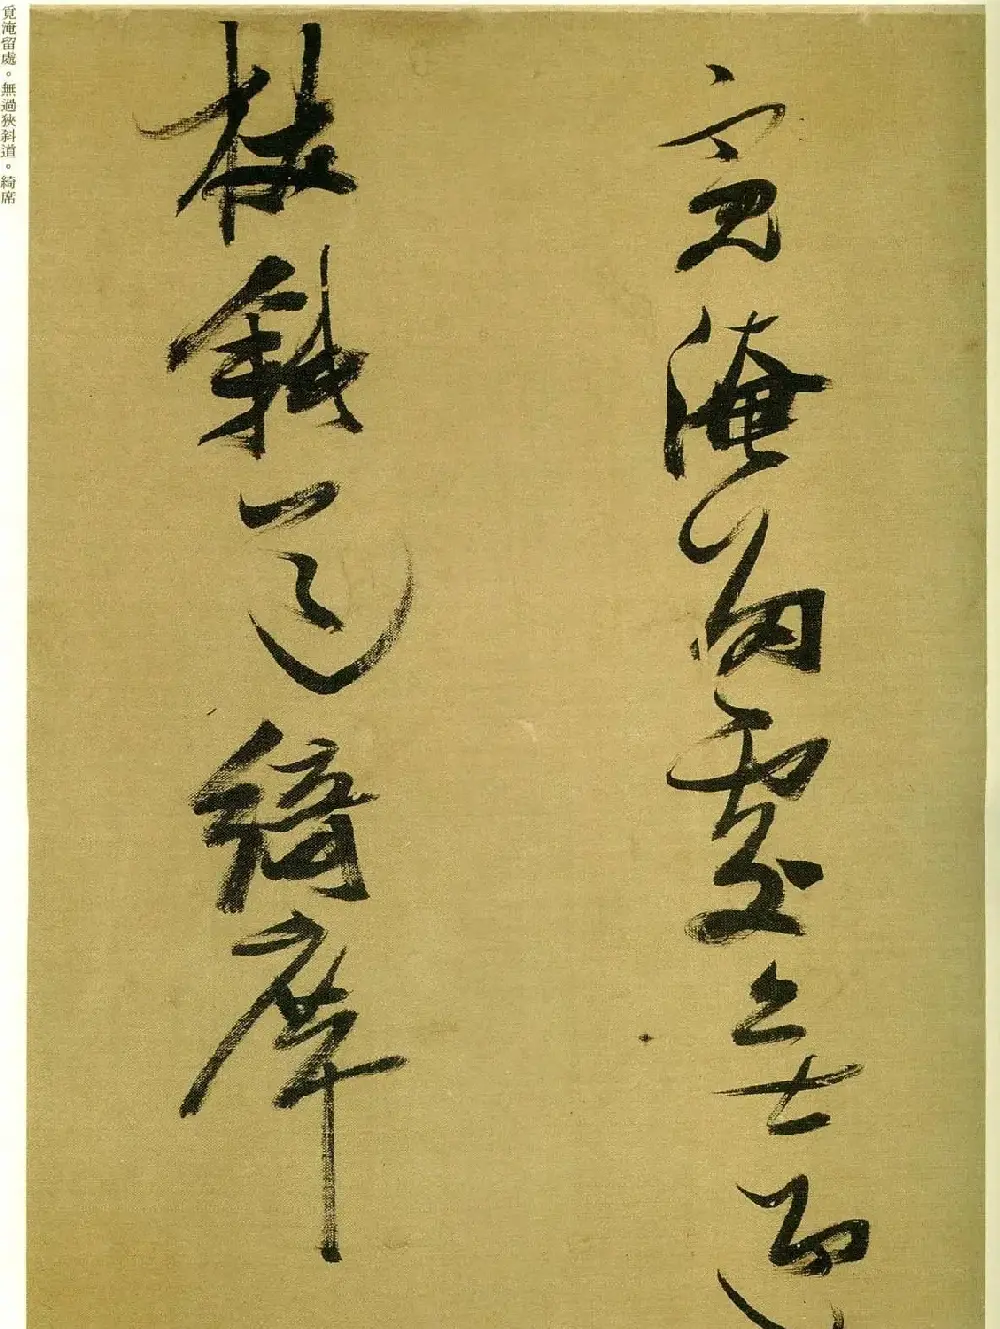 覓淹留處無過
狹斜道綺席
覓淹留處。無過狹斜道。綺席